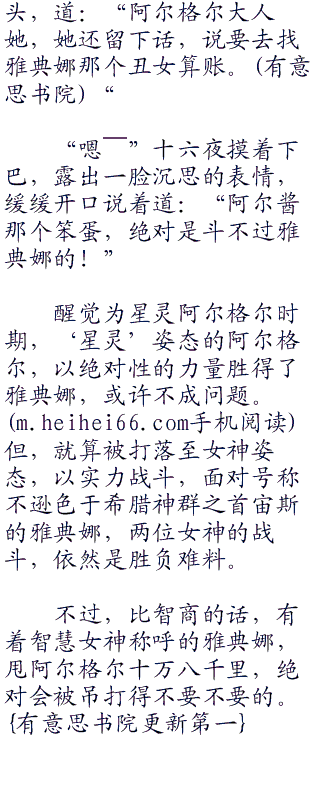 头，道：“阿尔格尔大人
她，她还留下话，说要去找
雅典娜那个丑女算账。(有意
思书院）“
“嗯——”十六夜摸着下
巴，露出一脸沉思的表情，
缓缓开口说着道：“阿尔酱
那个笨蛋，绝对是斗不过雅
典娜的！”
醒觉为星灵阿尔格尔时
期，‘星灵’姿态的阿尔格
尔，以绝对性的力量胜得了
雅典娜，或许不成问题。
(m.heihei66.com手机阅读)
但，就算被打落至女神姿
态，以实力战斗，面对号称
不逊色于希腊神群之首宙斯
的雅典娜，两位女神的战
斗，依然是胜负难料。
不过，比智商的话，有
着智慧女神称呼的雅典娜，
甩阿尔格尔十万八千里，绝
对会被吊打得不要不要的。
{有意思书院更新第一}